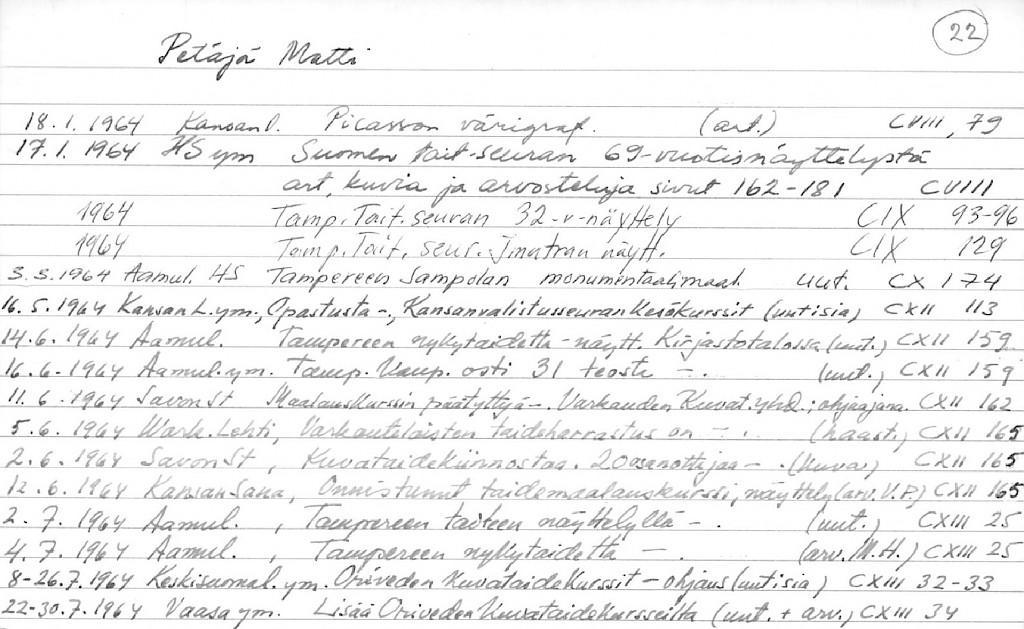 22
Petäjä Matti
18.1.1964 Kansan l. Picasson värigraf. (art.) CVIII, 79
17.1.1964 HS ym Suomen tait-seuran 69-vuotisnäyttelystä
art, kuvia ja arvosteluja sivut 162-181 CVIII
1964 Tamp. Tait. seuran 32-v-näyttely CIX 93-96
1964 Tamp. Tait. seur. Imatran näytt. CIX 129
3.3.1964 Aamul. HS Tampereen Sampolan monumentaalimaal. uut. CX 174
16.5.1964 Kansan L. ym., Opastusta -, Kansanvalistusseuran Kesäkurssit (uutisia) CXII 113
14.6.1964 Aamul. Tampereen nykytaidetta - näytt. Kirjastotalossa (uut.) CXII 159
16.6.1964 Aamul. ym. Tamp. Kaup. osti 31 teosta -. (uut.) CXII 159
11.6.1964 Savon St Maalauskurssin päätyttyä -. Varkauden Kuvat.yhd.; ohjaajana. CXII 162
5.6.1964 Wark. Lehti, Varkautelaisten taideharrastus on -. (haast.) CXII 165
2.6.1964 Savon St, Kuvataidekiinnostaa. 20 osanottajaa -. (kuva) CXII 165
12.6.1964 Kansan Sana, Onnistunut taidemaalauskurssi, näyttely (arv. V.P.) CXII 165
2.7.1964 Aamul., Tampereen taiteen näyttelyllä -. (uut.) CXIII 25
4.7.1964 Aamul., Tampereen nykytaidetta -. (arv. M.H.) CXIII 25
8-26.7.1964 Keskisuomal. ym. Oriveden Kuvataidekurssit - ohjaus (uutisia) CXIII 32-33
22-30.7.1964 Vaasa ym. Lisää Oriveden Kuvataidekursseilta (uut. + arv.) CXIII 34